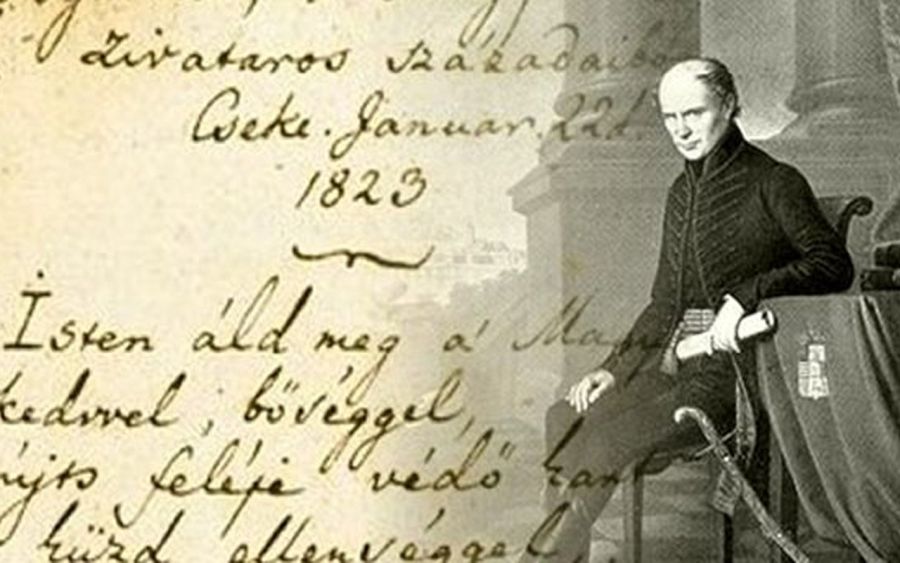 zivataros századaiból
Cseke. Januar 22d
1823
Isten áld meg a' Magy
kedvvel, bőséggel,
nyújts feléje védő kart
küzd ellenséggel,